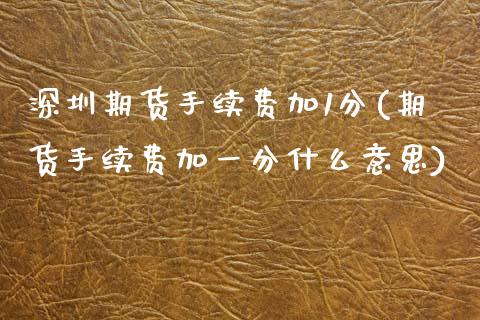 深圳期货手续费加1分(期
货手续费加一分什么意思)